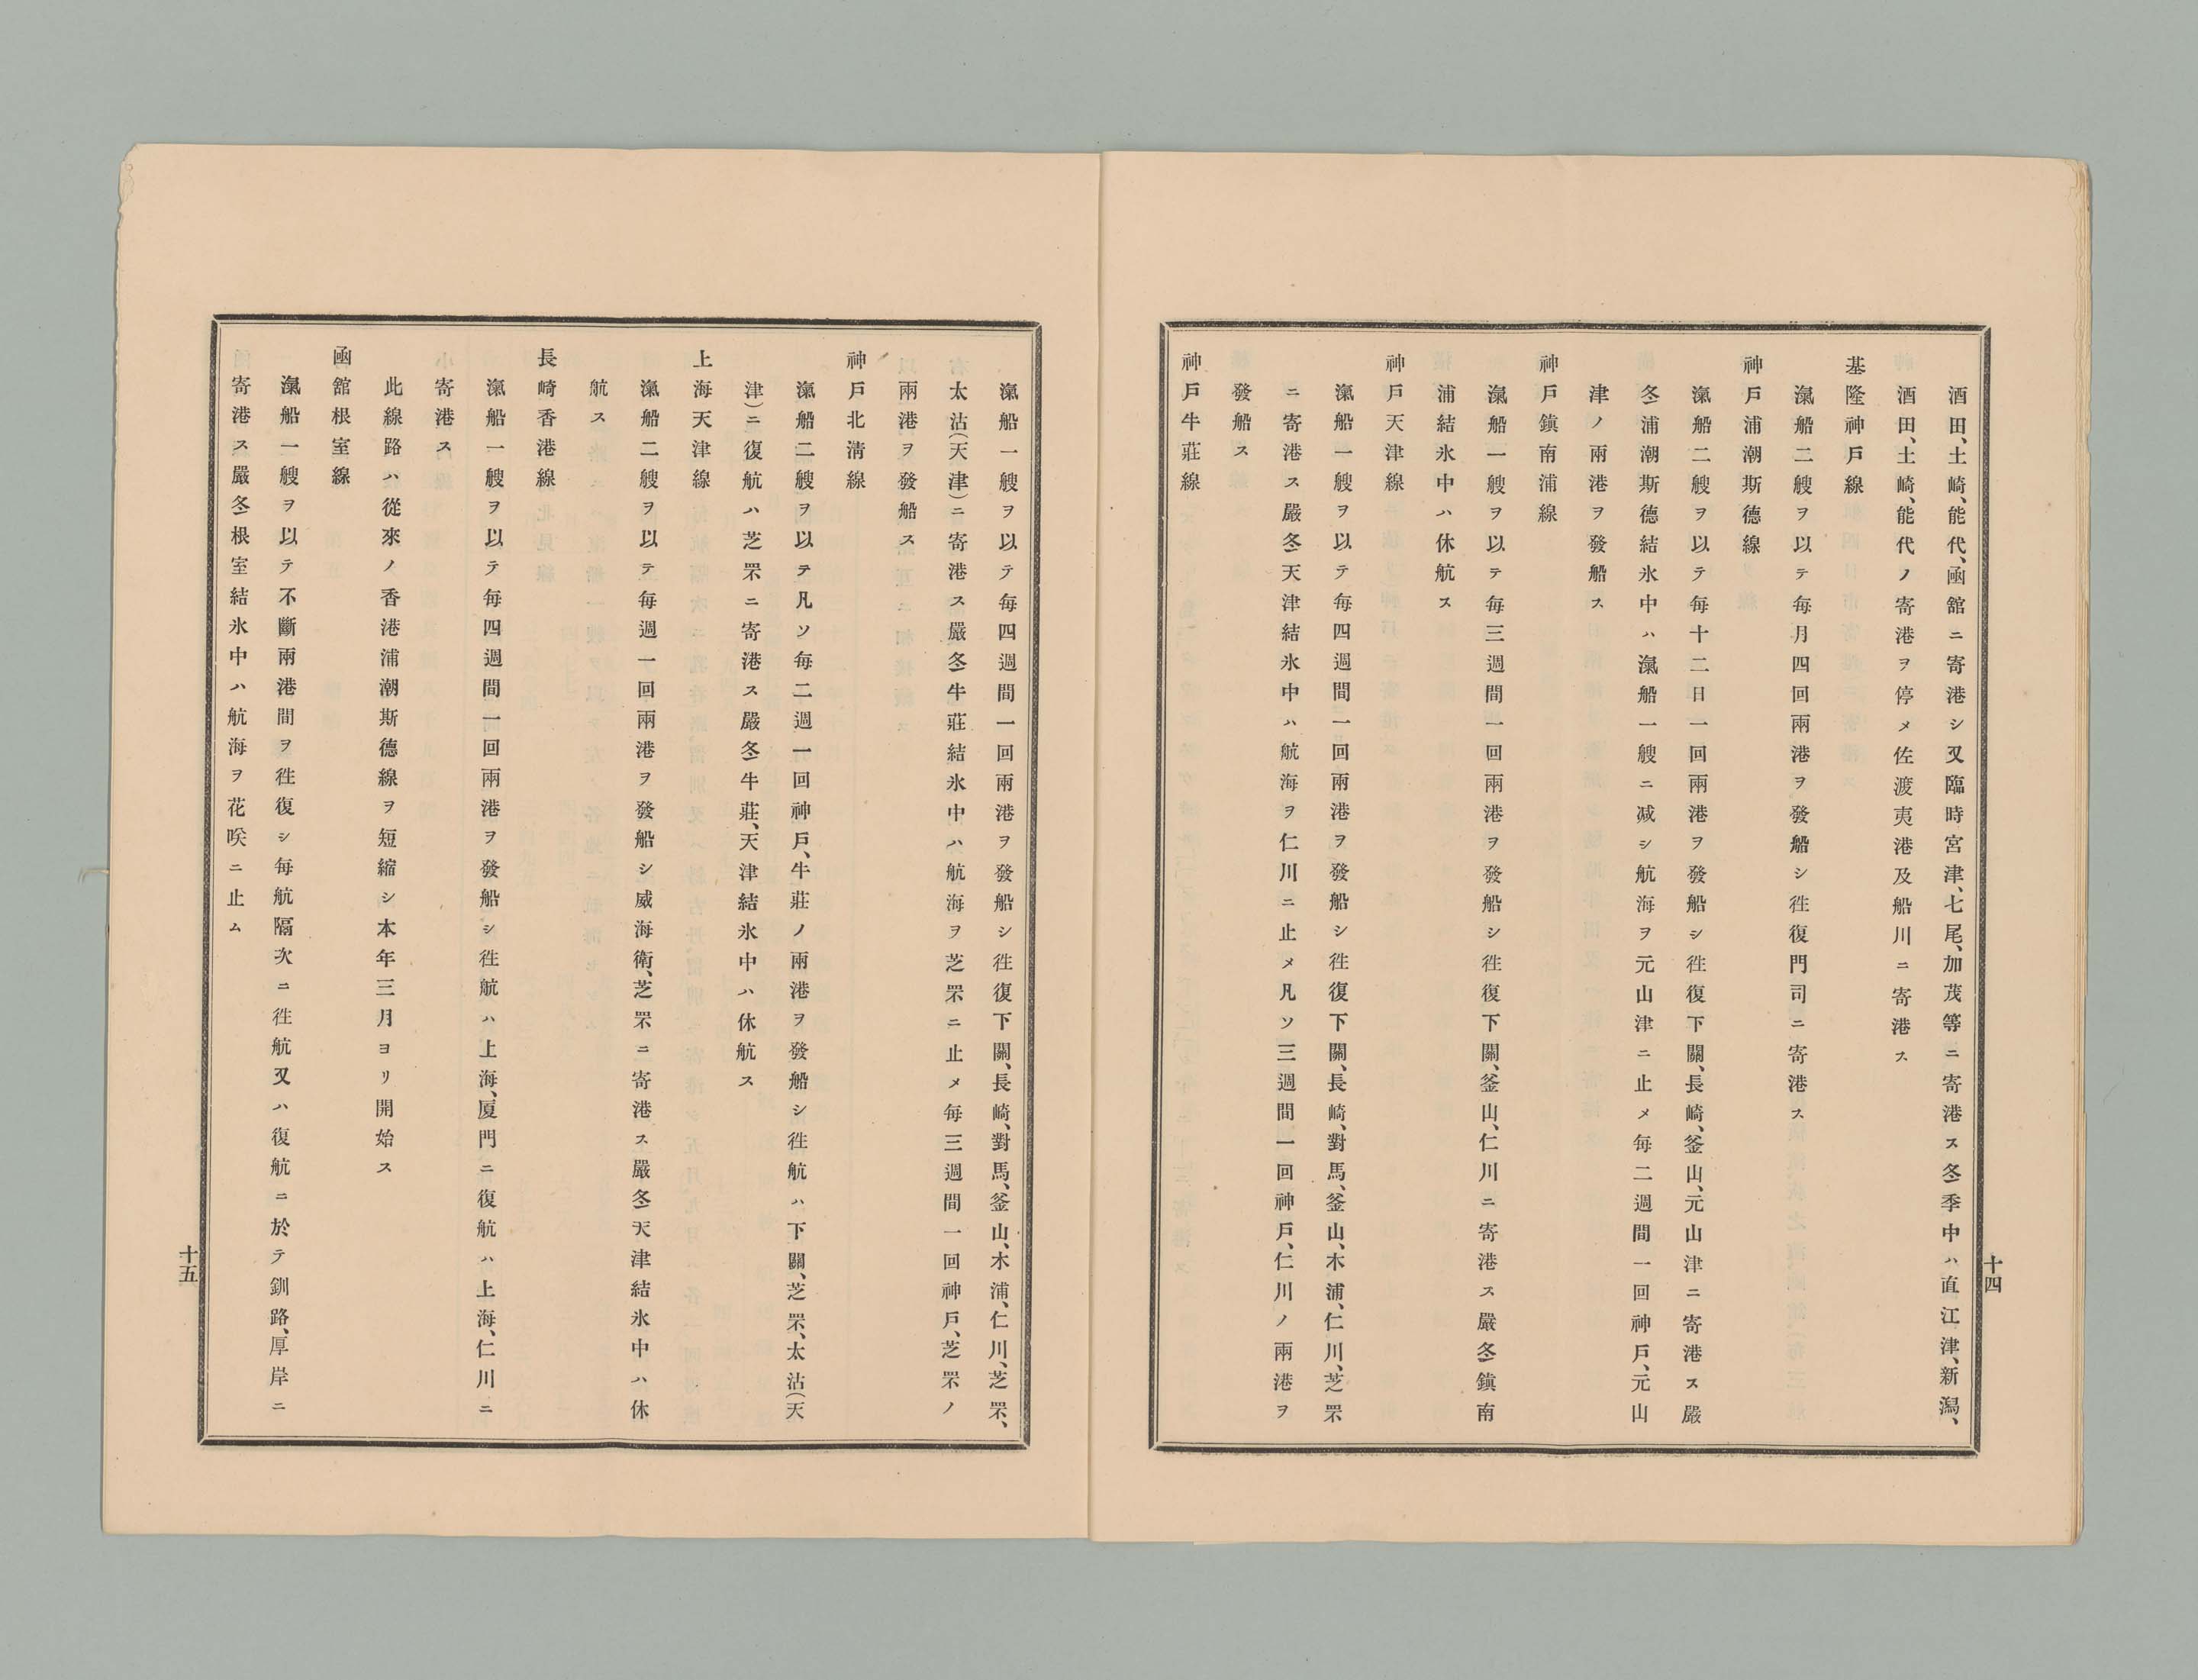 酒田、土崎、能代、凾舘ニ寄港シ又臨時宮津、七尾、加茂等ニ寄港ス冬季中ハ直江津、新潟、
酒田、土崎、能代ノ寄港ヲ停メ佐渡夷港及船川ニ寄港ス
基隆神戸線
滊船二艘ヲ以テ毎月四回兩港ヲ發船シ徃復門司ニ寄港ス
神戸浦潮斯德線
滊船二艘ヲ以テ毎十二日一回兩港ヲ發船シ徃復下關、長崎、釜山、元山津ニ寄港ス嚴
冬浦潮斯德結氷中ハ滊船一艘ニ减シ航海ヲ元山津ニ止メ毎二週間一回神戸、元山
津ノ兩港ヲ發船ス
神戸鎭南浦線
滊船一艘ヲ以テ毎三週間一回兩港ヲ發船シ徃復下關、釜山、仁川ニ寄港ス嚴冬鎭南
浦結氷中ハ休航ス
神戸天津線
滊船一艘ヲ以テ毎四週間一回兩港ヲ發船シ徃復下關、長崎、對馬、釜山、木浦、仁川、芝罘
ニ寄港ス嚴冬天津結氷中ハ航海ヲ仁川ニ止メ凡ソ三週間一回神戸、仁川ノ兩港ヲ
發船ス
神戸牛莊線
十四
滊船一艘ヲ以テ毎四週間一回兩港ヲ發船シ徃復下關、長崎、對馬、釜山、木浦、仁川、芝罘、
太沽(天津)ニ寄港ス嚴冬牛莊結氷中ハ航海ヲ芝罘ニ止メ毎三週間一回神戸、芝罘ノ
兩港ヲ發船ス
神戸北淸線
滊船二艘ヲ以テ凡ソ毎二週一回神戸、牛莊ノ兩港ヲ發船シ徃航ハ下關、芝罘、太沽(天
津)ニ復航ハ芝罘ニ寄港ス嚴冬牛莊、天津結氷中ハ休航ス
上海天津線
滊船二艘ヲ以テ毎週一回兩港ヲ發船シ威海衛、芝罘ニ寄港ス嚴冬天津結氷中ハ休
航ス
長崎香港線
滊船一艘ヲ以テ毎四週間一回兩港ヲ發船シ徃航ハ上海、厦門ニ復航ハ上海、仁川ニ
寄港ス
此線路ハ從來ノ香港浦潮斯德線ヲ短縮シ本年三月ヨリ開始ス
凾舘根室線
滊船一艘ヲ以テ不斷兩港間ヲ徃復シ毎航隔次ニ徃航又ハ復航ニ於テ釧路、厚岸ニ
寄港ス嚴冬根室結氷中ハ航海ヲ花咲ニ止ム
十五